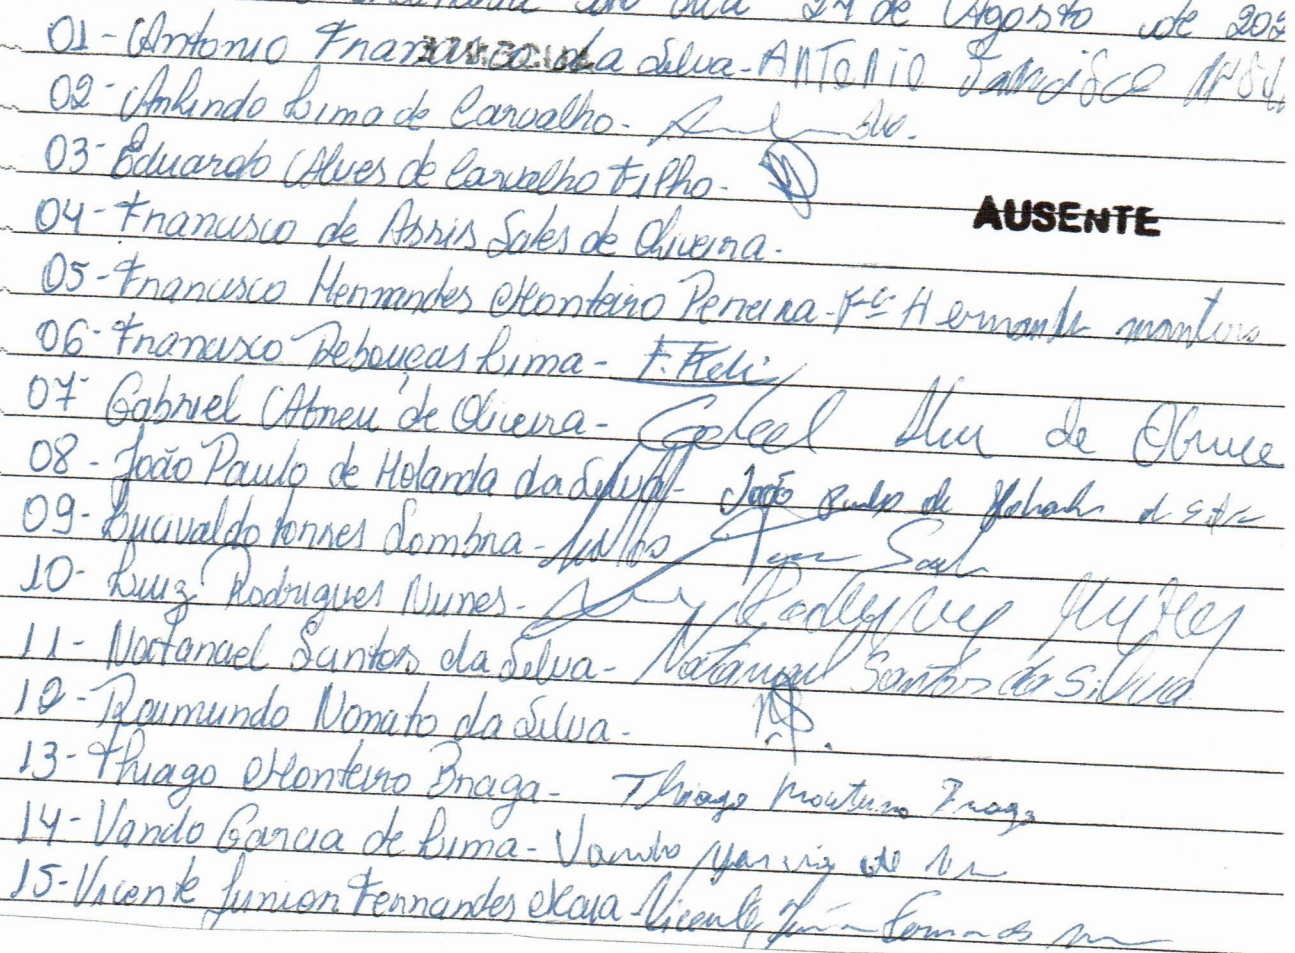 dia 27 de Agosto de 202
01- Antonio Francisco da Silva - ANTONIO
02- Arlindo Lima de Carvalho -
03- Eduardo Alves de Carvalho Filho -
AUSENTE
04- Francisco de Assis Sales de Oliveira -
05- Francisco Hernandes Monteiro Pereira - Fco Hernandes monteiro
06- Francisco Rebouças Lima -
07- Gabriel Abreu de Oliveira - Gabriel de
08- João Paulo de Holanda da Silva - João Paulo de Holanda da Silva
09- Lucivaldo Torres Sombra -
10- Luiz Rodrigues Nunes - Rodrigues Nunes
11- Natanael Santos da Silva - Natanael Santos da Silva
12- Raimundo Nonato da Silva -
13- Thiago Monteiro Braga - Thiago Monteiro Braga
14- Vando Garcia de Lima - Vando Garcia de
15- Vicente Junior Fernandes Maia - Vicente Júnior Fernandes